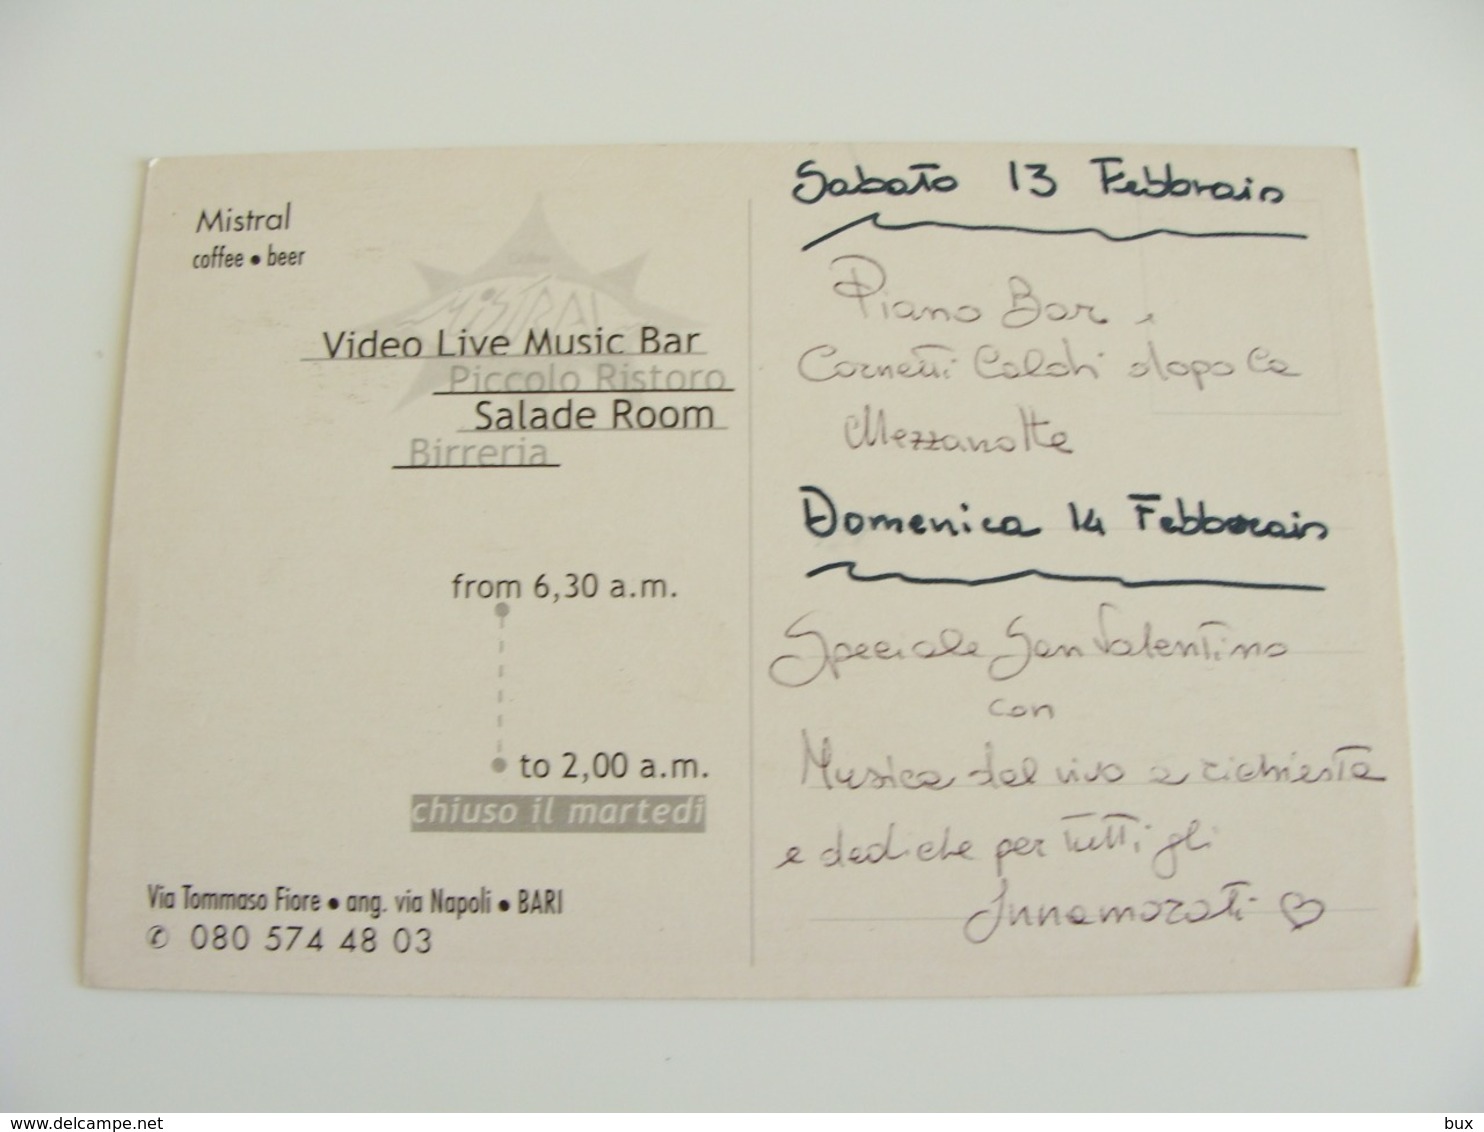 Mistral
coffee • beer
MISTRAL
Video Live Music Bar
Piccolo Ristoro
Salade Room
Birreria
from 6,30 a.m.
to 2,00 a.m.
chiuso il martedì
Via Tommaso Fiore • ang. via Napoli • BARI
✆ 080 574 48 03
Sabato 13 Febbraio
Piano Bar e
Cornetti Caldi dopo la
Mezzanotte
Domenica 14 Febbraio
Speciale San Valentino
con
Musica dal vivo a richiesta
e dediche per tutti gli
Innamorati ♡
delcampe.net
bux